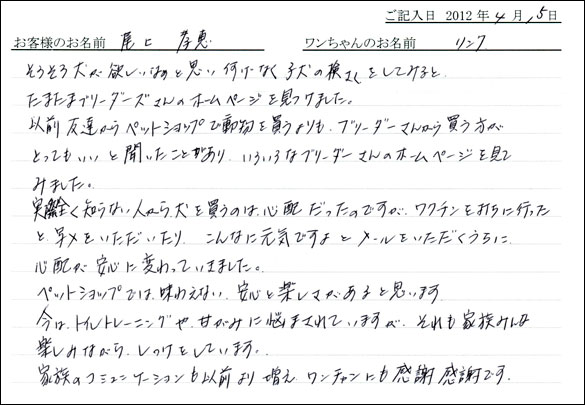 ご記入日 2012年4月15日
お客様のお名前 尾上 孝恵 ワンちゃんのお名前 リンク
そろそろ犬が欲しいなぁと思い何げなく子犬の検さくをしてみると
たまたまブリーダーズさんのホームページを見つけました。
以前友達からペットショップで動物を買うよりも、ブリーダーさんから買う方が
とってもいいと聞いたことがあり、いろいろなブリーダーさんのホームページを見て
みました。
実際全く知らない人から犬を買うのは、心配だったのですが、ワクチンを打ちに行った
と、写メをいただいたり、こんなに元気ですよとメールをいただくうちに
心配が安心に変わっていきました。
ペットショップでは、味わえない、安心と楽しさがあると思います
今は、トイレトレーニングや、甘がみに悩まされていますが、それも家族みんな
楽しみながら、しつけをしています。
家族のコミュニケーションも以前より増え、ワンチャンにも感謝感謝です。